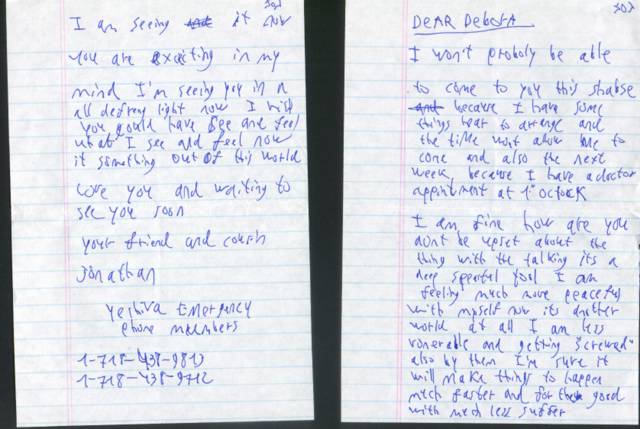 I am seeing it now
you are exciting in my
mind I'm seeing you in a
all light now I wish
you could have see and feel
what I see and feel now
it something out of this world
Love you and waiting to
see you soon
your friend and cousin
Jonathan
Yeshiva Emergency
phone numbers
1-718-438-9813
1-718-438-9712
DEAR Debora
I won't proboly be able
to come to you this shabse
because I have some
things hear to arrange and
the time wont allow me to
come and also the next
week, because I have a doctor
appointment at 1 Oclock
I am fine how are you
dont be upset about the
thing with the talking its a
deep I am
feeling much more peaceful
with myself now its another
world at all I am less
vonerable and getting screwed
also by them I'm sure it
will make things to happen
much faster and for the good
with much less suffer